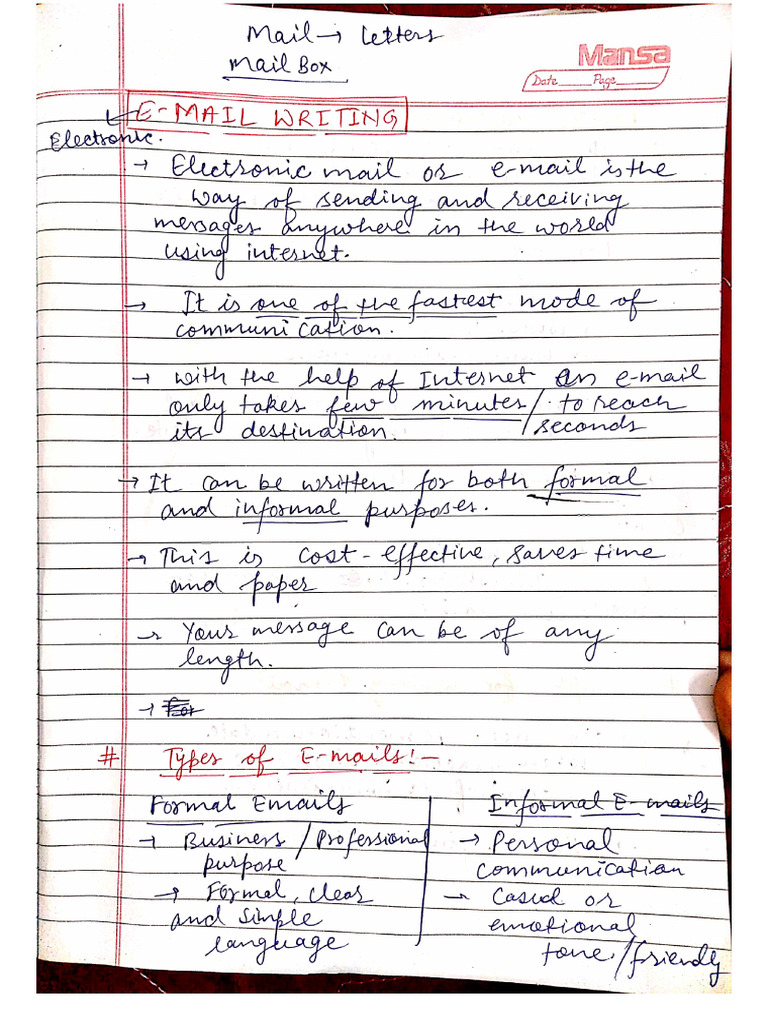 Mail → Letters
Mail Box
Mansa
Date____Page____
E-MAIL WRITING
Electronic.
→ Electronic mail or e-mail is the
way of sending and receiving
messages anywhere in the world
using internet.
→ It is one of the fastest mode of
communication.
→ With the help of Internet an e-mail
only takes few minutes/ to reach
its destination. /seconds
→ It can be written for both formal
and informal purposes.
→ This is cost-effective, saves time
and paper
→ Your message can be of any
length.
→ for
# Types of E-mails:-
Formal Emails
→ Business/Professional
purpose
→ Formal, clear
and simple
language
Informal E-mails
→ Personal
communication
→ Casual or
emotional
tone./friendly